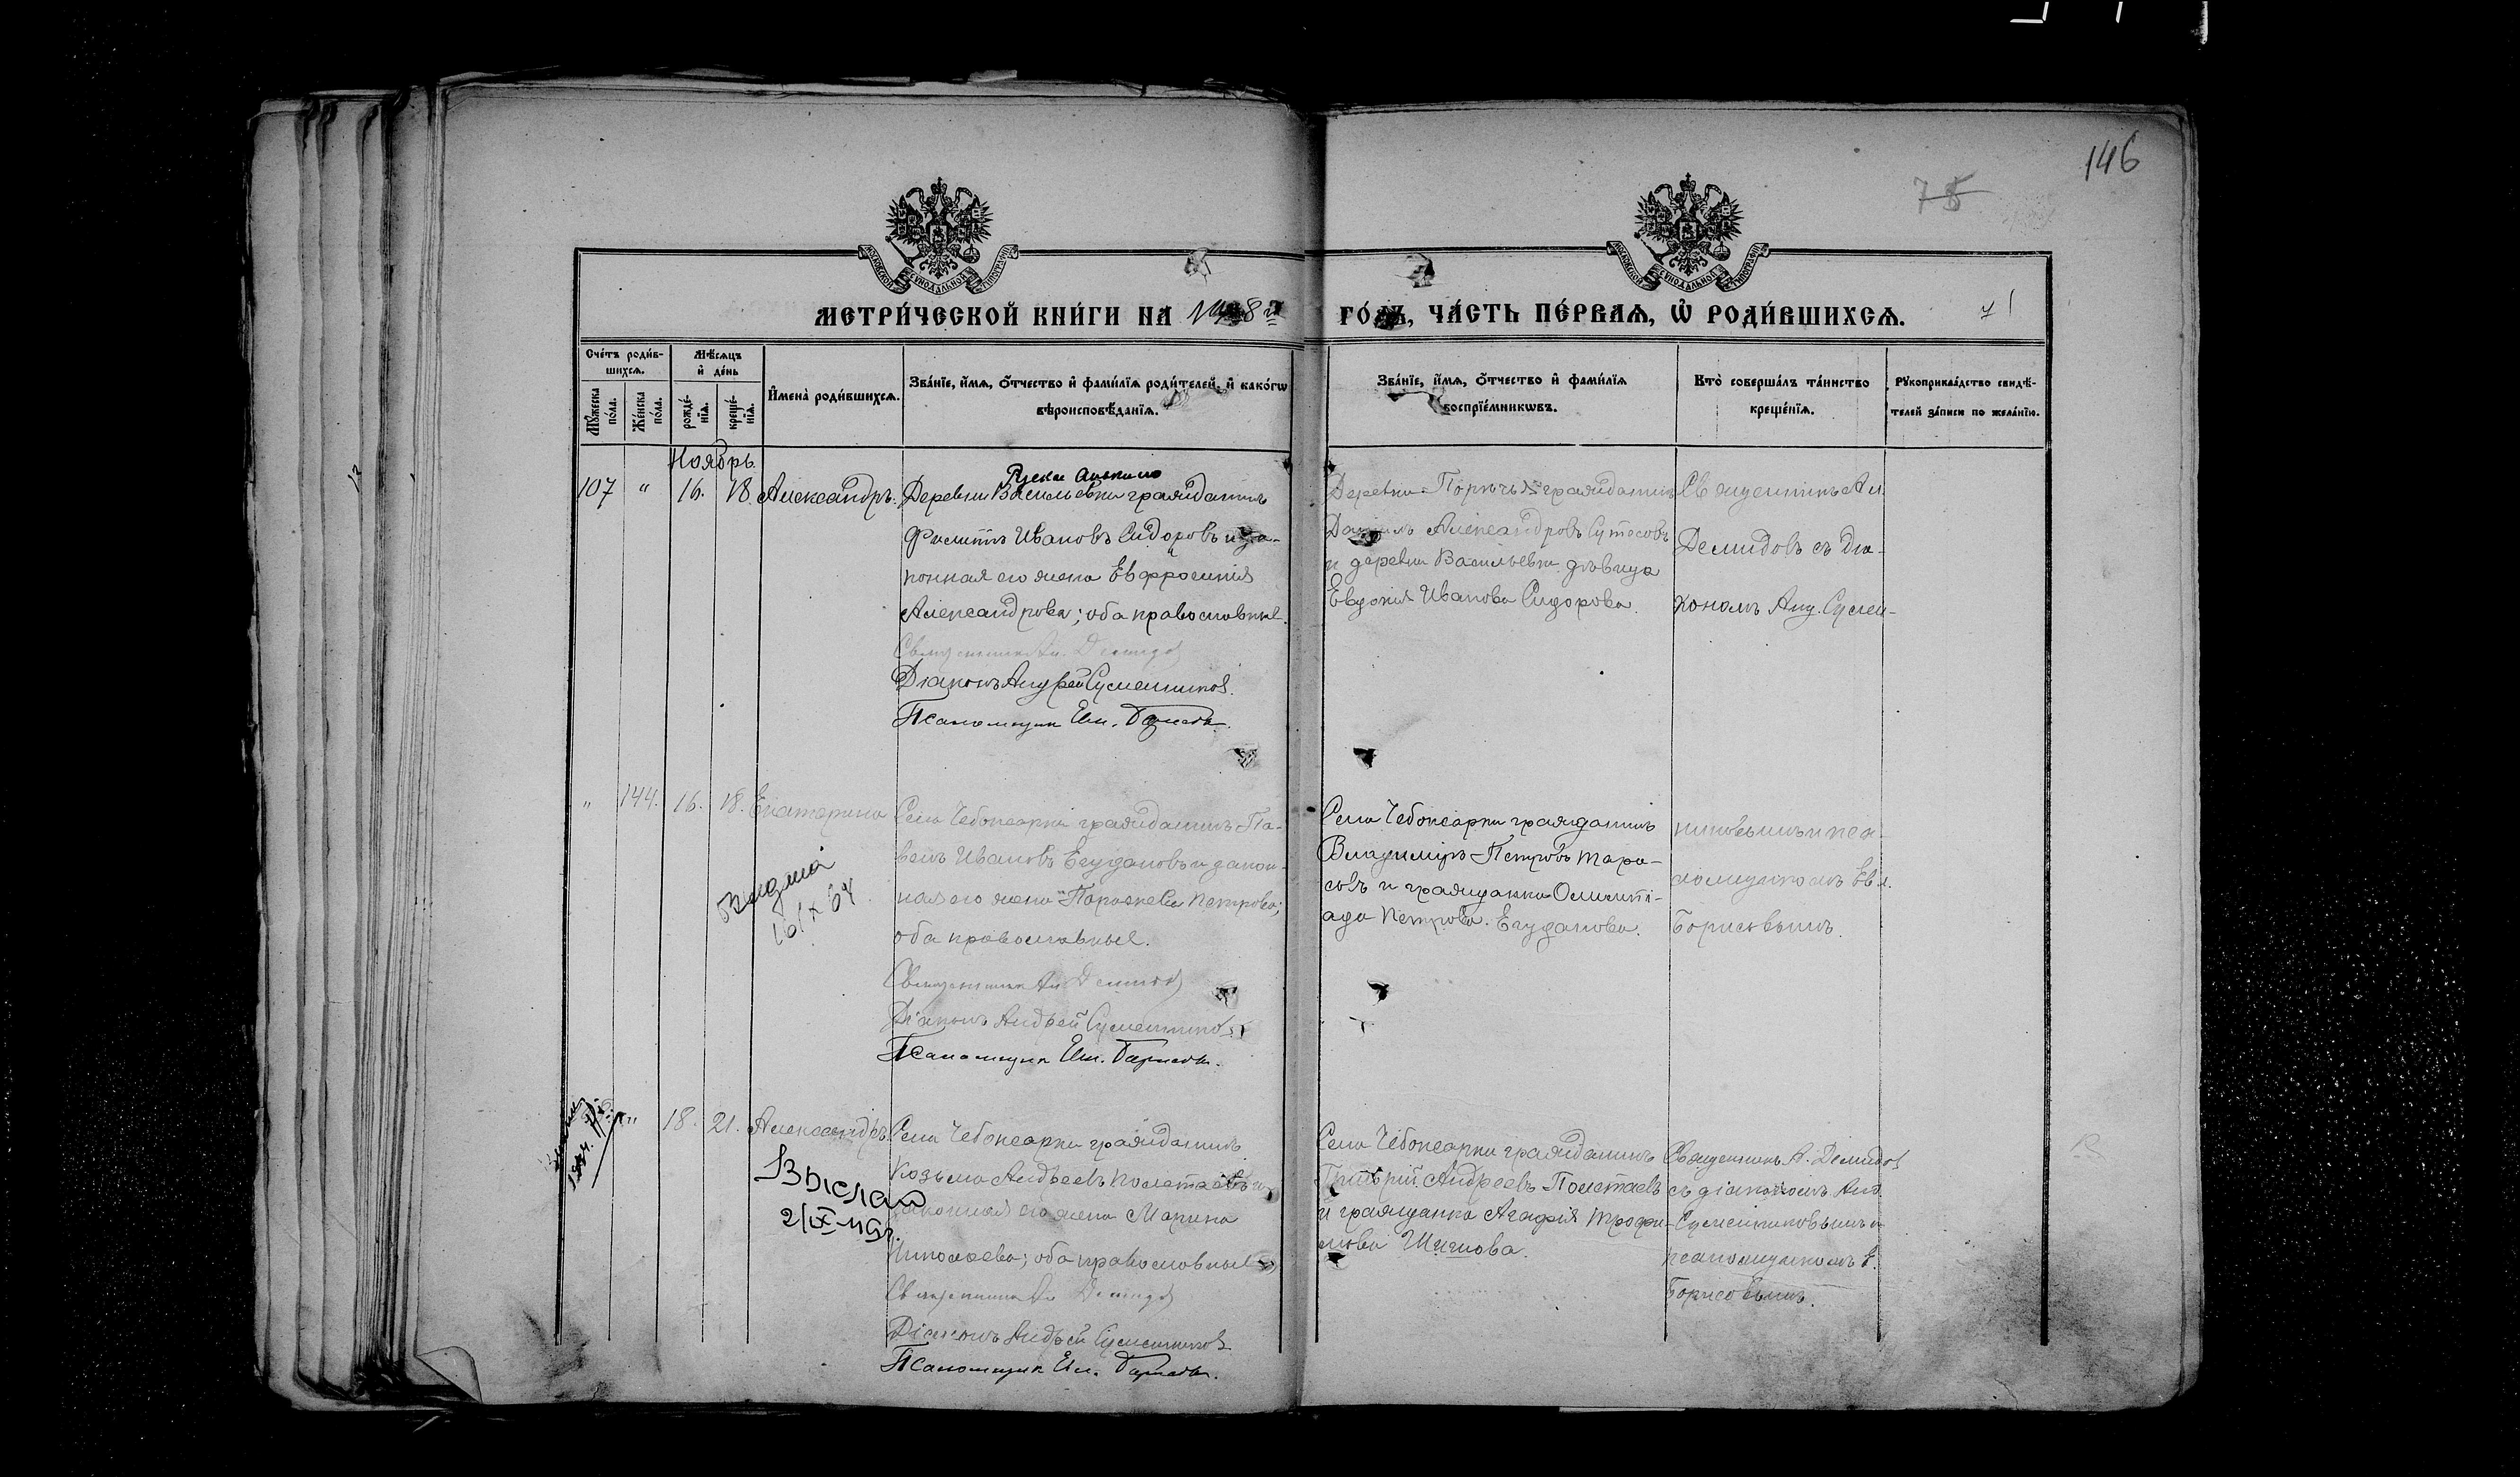 146
78
МЕТРИ́ЧЕСКОЙ КНИ́ГИ НА 1918 г ГО́ДЪ, ЧА́СТЬ ПЕ́РВАЯ, Ѡ҆ РОДИ́ВШИХСЯ.
Сче́тъ роди́в-
шихсѧ.
Мꙋ́жеска по́ла.
Же́нска по́ла.
Мѣ́сѧцъ
и҆ де́нь
рожде́-
нїѧ.
креще́-
нїѧ.
И҆мена̀ роди́вшихсѧ.
Зва́нїе, и҆́мѧ, ѻ҆́тчество и҆ фами́лїѧ роди́телей, и҆ како́гѡ
вѣроисповѣ́данїѧ.
Зва́нїе, и҆́мѧ, ѻ҆́тчество и҆ фами́лїѧ
воспрїе́мникѡвъ.
Кто̀ соверша́лъ та́инство
креще́нїѧ.
Рꙋкоприкла́дство свидѣ́-
телей за́писи по жела́нїю.
Ноябрь.
107 " 16. 18. Александръ. Деревни Васильевки гражданинъ
Филиппъ Ивановъ Сидоровъ и за-
конная его жена Евфросинія
Александрова; оба православные.
Священникъ Ал. Демидов
Діаконъ Андрей Сусленников.
Псаломщик Ем. Борисов.
Деревни гражданинъ
Даніилъ Александровъ
и деревни Васильевки дѣвица
Евдокія Иванова Сидорова.
Священникъ Ал.
Демидовъ съ діа-
кономъ Анд. Суслен-
" 144. 16. 18. Екатерина Села Чебоксарки гражданинъ Па-
велъ Ивановъ и закон-
ная его жена Параскева Петрова;
оба православные.
Священникъ Ал Демидов
Діаконъ Андрей Сусленников
Псаломщик Ем. Борисов.
Села Чебоксарки гражданинъ
Владиміръ Петровъ Тара-
совъ и гражданка Олимпі-
ада Петрова.
никовымъ и пса-
ломщикомъ Ем.
Борисовымъ.
" 18. 21. Александръ. Села Чебоксарки гражданинъ
Козьма Андреевъ Полетаевъ и
законная его жена Марина
Николаева; оба православные
Священник Ал Демидов
Діаконъ Андрей Сусленников
Псаломщик Ем. Борисов.
Выслан
2/IX-
Села Чебоксарки гражданинъ
Андреевъ Полетаевъ
и гражданка Агафія Трофи-
мова
Священникъ А. Демидов
съ діакономъ Анд.
Сусленниковымъ и
псаломщикомъ Е.
Борисовымъ.